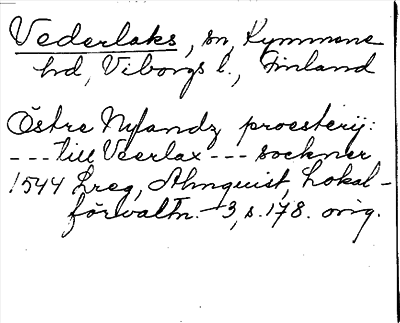 Vederlaks, sn, Kymmene
hd, Viborgs l., Finland
Östre Nylandz proesterij:
--- till Veerlax --- sockner
1544 Lreg, Almquist, Lokal-
förvaltn. 3, s. 178. orig.